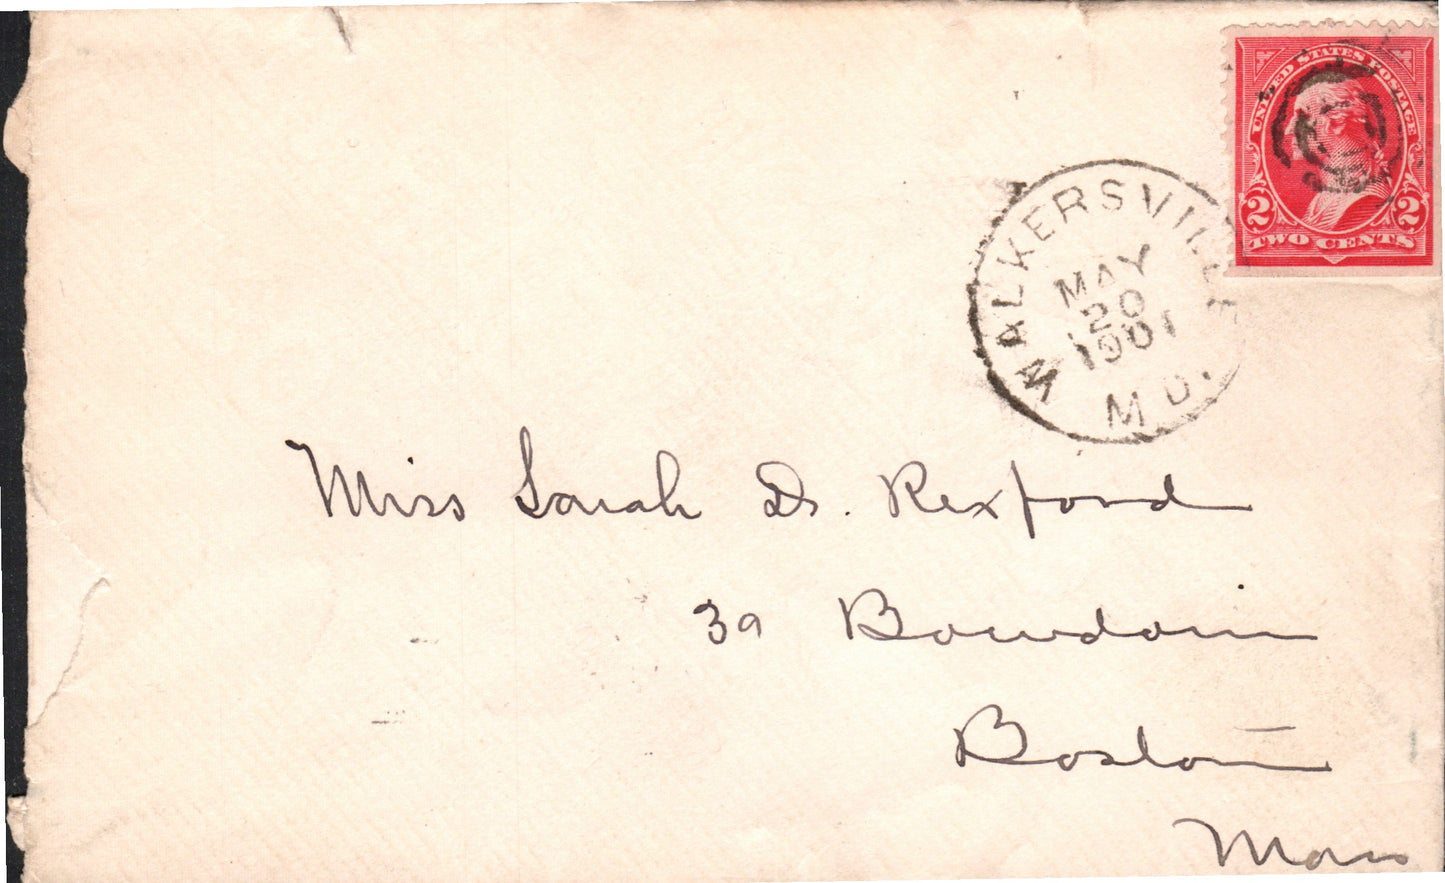 UNITED STATES POSTAGE
2 2
TWO CENTS
WALKERSVILLE
MAY
20
1901
MD.
Miss Sarah D. Rexford
39 Bowdoin
Boston
Mass